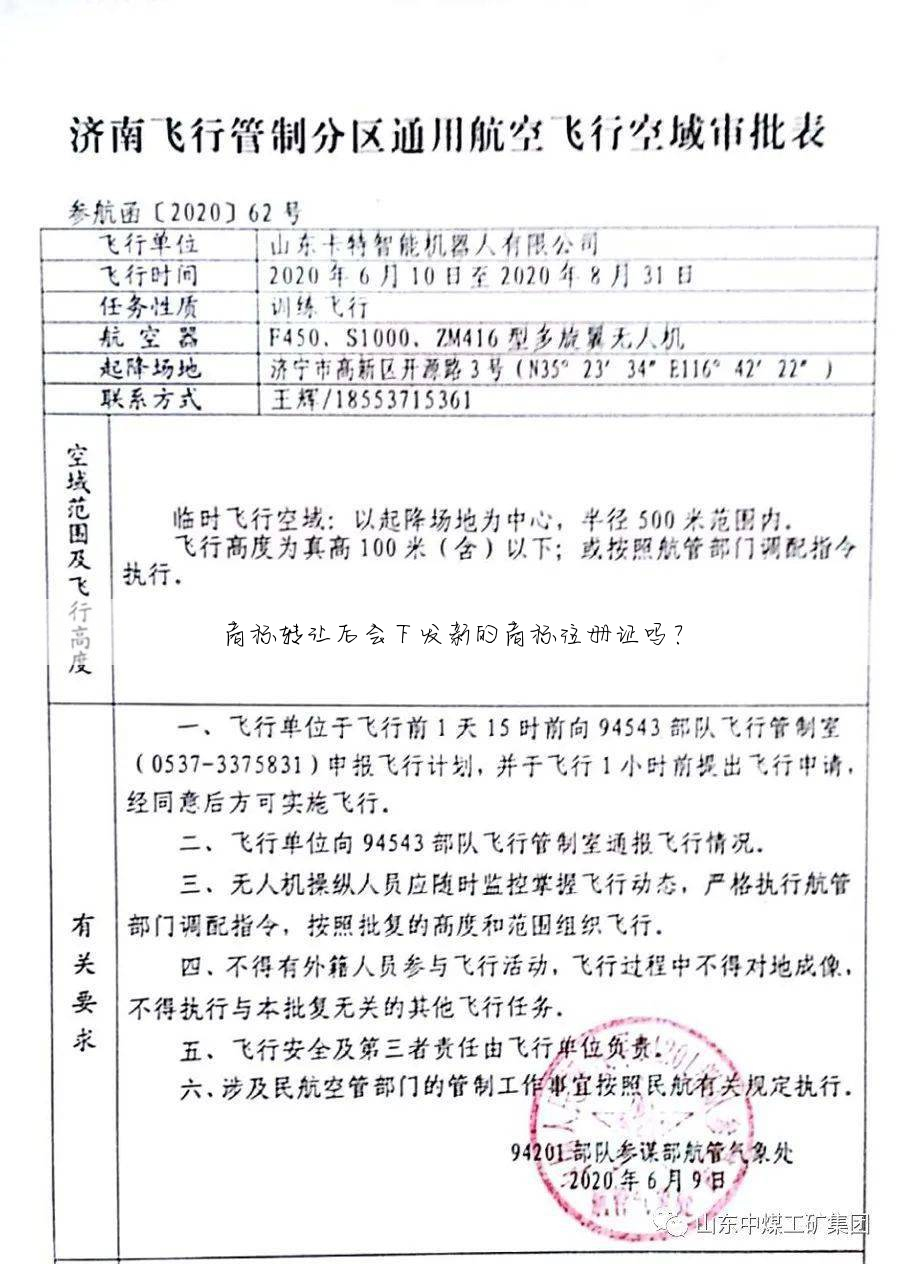 济南飞行管制分区通用航空飞行空域审批表
参航函〔2020〕62号
飞行单位 山东卡特智能机器人有限公司
飞行时间 2020年6月10日至2020年8月31日
任务性质 训练飞行
航空器 F450、S1000、ZM416型多旋翼无人机
起降场地 济宁市高新区开源路3号（N35° 23′ 34″ E116° 42′ 22″ ）
联系方式 王辉/18553715361
空域范围及飞行高度
临时飞行空域：以起降场地为中心，半径500米范围内．
飞行高度为真高100米（含）以下；或按照航管部门调配指令
执行．
商标转让后会下发新的商标注册证吗?
有关要求
一、飞行单位于飞行前1天15时前向94543部队飞行管制室
（0537-3375831）申报飞行计划，并于飞行1小时前提出飞行申请，
经同意后方可实施飞行．
二、飞行单位向94543部队飞行管制室通报飞行情况．
三、无人机操纵人员应随时监控掌握飞行动态，严格执行航管
部门调配指令，按照批复的高度和范围组织飞行．
四、不得有外籍人员参与飞行活动，飞行过程中不得对地成像，
不得执行与本批复无关的其他飞行任务．
五、飞行安全及第三者责任由飞行单位负责．
六、涉及民航空管部门的管制工作事宜按照民航有关规定执行．
94201部队参谋部航管气象处
2020年6月9日
航管气象处
山东中煤工矿集团